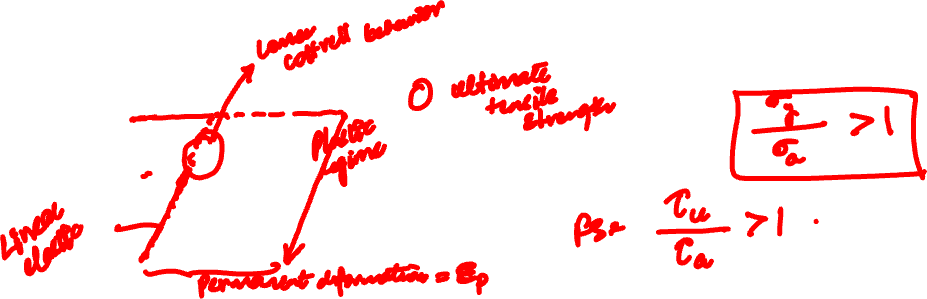 Lomer
cottrell behavior
O ultimate
tensile
strength
Plastic
regime
Linear
elastic
Permanent deformation = ε_p
σ_y / σ_a > 1
FS = τ_u / τ_a > 1